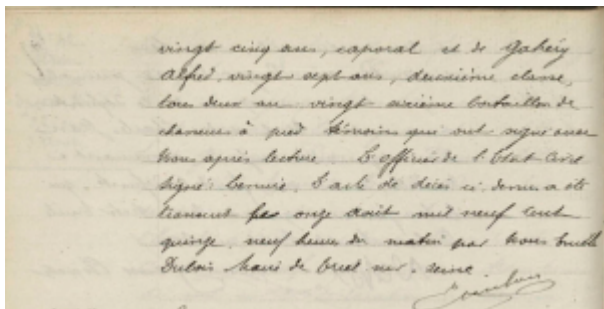 vingt cinq ans, caporal et de Gahéry
Alfred, vingt sept ans, deuxième classe,
tous deux au vingt sixième bataillon de
chasseurs à pied témoins qui ont signé avec
nous après lecture. L'officier de l'Etat Civil
signé: L'acte de décès ci-dessus a été
transcrit le onze août mil neuf cent
quinze, neuf heures du matin par nous
Dubois Maire de sur-Seine